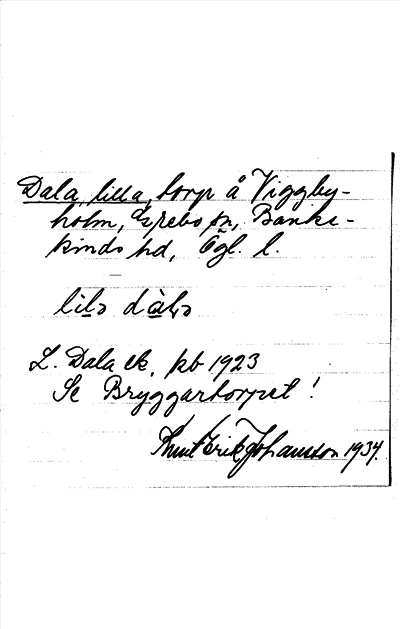 Dala, lilla, torp å Viggby-
holm, Asrebo sn, Banke-
kinds hd, Ögl. l.
L. Dala ek. kb 1923
Se Bryggartorpet!
Knut Erik Johansson 1934.